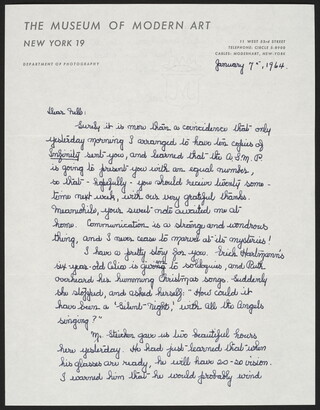 THE MUSEUM OF MODERN ART
NEW YORK 19
11 WEST 53rd STREET
TELEPHONE: CIRCLE 5-8900
CABLES: MODERNART, NEW-YORK
DEPARTMENT OF PHOTOGRAPHY
January 7, 1964.
Dear Nell:
Surely it is more than a coincidence that only
yesterday morning I arranged to have ten copies of
Infinity sent you, and learned that the A.S.M.P.
is going to present you with an equal number,
so that - hopefully - you should receive twenty some-
time next week, with our very grateful thanks.
Meanwhile, your sweet note awaited me at
home. Communication is a strange and wondrous
thing, and I never cease to marvel at its mysteries!
I have a pretty story for you. Erich Hartmann's
six year old Celia is given to soliloquies, and Ruth
overheard her humming Christmas songs. Suddenly
she stopped, and asked herself: "How could it
have been a 'Silent Night,' with all the Angels
singing?"
Mr. Steichen gave us two beautiful hours
here yesterday. He had just learned that when
his glasses are ready, he will have 20-20 vision.
I warned him that he would probably wind